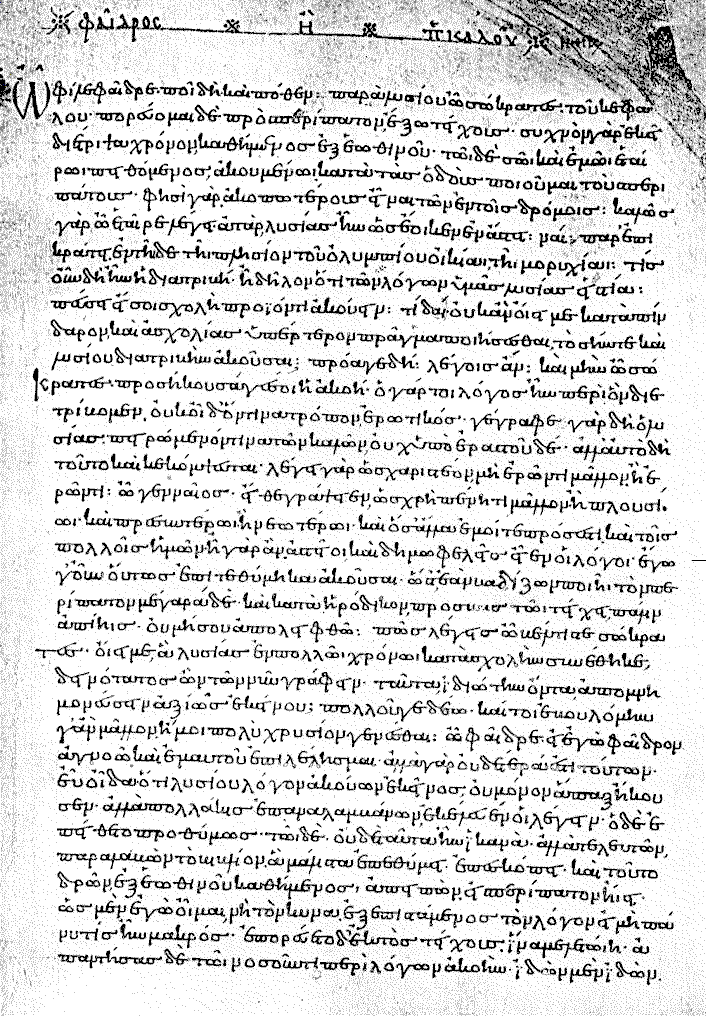 φαῖδρος ※ ἢ ※ περὶ καλοῦ ※
Ὦ φίλε φαῖδρε· ποῖ δὴ καὶ πόθεν: παρὰ λυσίου ὦ σώκρατες: τοῦ κεφά
λου· πορεύομαι δὲ πρὸς περίπατον, ἔξω τείχους· συχνὸν γὰρ ἐκεῖ
διέτριψα χρόνον, καθήμενος ἐξ ἑωθινοῦ· τῶι δὲ σῶι καὶ ἐμῶι ἑταί
ρωι πειθόμενος, ἀκουμενῶι, κατὰ τὰς ὁδοὺς ποιοῦμαι τοὺς περι
πάτους· φησὶ γὰρ ἀκοπωτέρους εἶναι τῶν ἐν τοῖς δρόμοις: καλῶς
γὰρ ὦ ἑταῖρε λέγει· ἀτὰρ λυσίας ἦν ὡς ἔοικεν ἐν ἄστει: ναί· παρ' ἐπι
κράτει, ἐν τῆδε τῆι πλησίον τοῦ ὀλυμπίου οἰκίαι τῆι μορυχίαι: τίς
οὖν δὴ ἦν ἡ διατριβή· ἢ δῆλον ὅτι τῶν λόγων ὑμᾶς λυσίας εἱστία:
πεύσει εἴ σοι σχολὴ προϊόντι ἀκούειν: τί δαί; οὐκ ἂν οἴει με κατὰ πίν
δαρον, καὶ ἀσχολίας ὑπέρτερον πρᾶγμα ποιήσεσθαι, τὸ σήν τε καὶ
λυσίου διατριβὴν ἀκοῦσαι; πρόαγε δή: λέγοις ἄν: καὶ μὴν ὦ σώ
κρατες· προσήκουσά γέ σοι ἡ ἀκοή· ὁ γάρ τοι λόγος ἦν περὶ ὃν διε
τρίβομεν, οὐκ οἶδ' ὅντινα τρόπον, ἐρωτικός· γέγραφε γὰρ δὴ ὁ λυ
σίας· πειρώμενόν τινα τῶν καλῶν, οὐχ ὑπ' ἐραστοῦ δέ· ἀλλ' αὐτὸ δὴ
τοῦτο καὶ κεκόμψευται· λέγει γὰρ ὡς χαριστέον, μὴ ἐρῶντι μᾶλλον, ἢ ἐ
ρῶντι: ὢ γενναῖος· εἴθε γράψειεν, ὡς χρὴ πένητι μᾶλλον, ἢ πλουσί
ωι· καὶ πρεσβυτέρωι ἢ νεωτέρωι· καὶ ὅσα ἄλλα ἐμοί τε πρόσεστι καὶ τοῖς
πολλοῖς ἡμῶν, ἦ γὰρ ἂν ἀστεῖοι καὶ δημωφελεῖς εἶεν οἱ λόγοι· ἔγω
γ' οὖν οὕτως ἐπιτεθύμηκα ἀκοῦσαι· ὥστ' ἐὰν βαδίζων ποιῆι τὸν πε
ρίπατον μέγαράδε· καὶ κατὰ ἡρόδικον, προσβὰς τῶι τείχει, πάλιν
ἀπίηις· οὐ μή σου ἀπολειφθῶ: πῶς λέγεις ὦ βέλτιστε σώκρα
τες· οἴει με, ἃ λυσίας ἐν πολλῶι χρόνωι κατὰ σχολὴν συνέθηκε,
δεινότατος ὢν τῶν νῦν γράφειν· ταῦτα ἰδιώτην ὄντα ἀπομνη
μονεύσειν ἀξίως ἐκείνου; πολλοῦ γε δέω· καίτοι ἐβουλόμην
γ' ἂν μᾶλλον, ἤ μοι πολὺ χρυσίον γενέσθαι: ὦ φαῖδρε, εἰ ἐγὼ φαῖδρον
ἀγνοῶ, καὶ ἐμαυτοῦ ἐπιλέλησμαι· ἀλλὰ γὰρ οὐδέτερά ἐστι τούτων·
εὖ οἶδα ὅτι λυσίου λόγον ἀκούων ἐκεῖνος, οὐ μόνον ἅπαξ ἤκου
σεν· ἀλλὰ πολλάκις ἐπαναλαμβάνων ἐκέλευέν οἱ λέγειν· ὁ δὲ ἐ
πείθετο προθύμως· τῶι δὲ, οὐδὲ ταῦτα ἦν ἱκανά· ἀλλὰ τελευτῶν,
παραλαβὼν τὸ βιβλίον, ἃ μάλιστα ἐπεθύμει ἐπεσκόπει· καὶ τοῦτο
δρῶν, ἐξ ἑωθινοῦ καθήμενος, ἀπειπὼν, εἰς περίπατον ἤιει·
ὡς μὲν ἐγὼ οἶμαι, νὴ τὸν κύνα, ἐξεπιστάμενος τὸν λόγον, εἰ μὴ πάνυ
τις ἦν μακρός· ἐπορεύετο δ' ἐκτὸς τείχους, ἵνα μελετώιη· ἀ
παντήσας δὲ τῶι νοσοῦντι περὶ λόγων ἀκοήν· ἰδὼν μὲν, ἰδὼν,